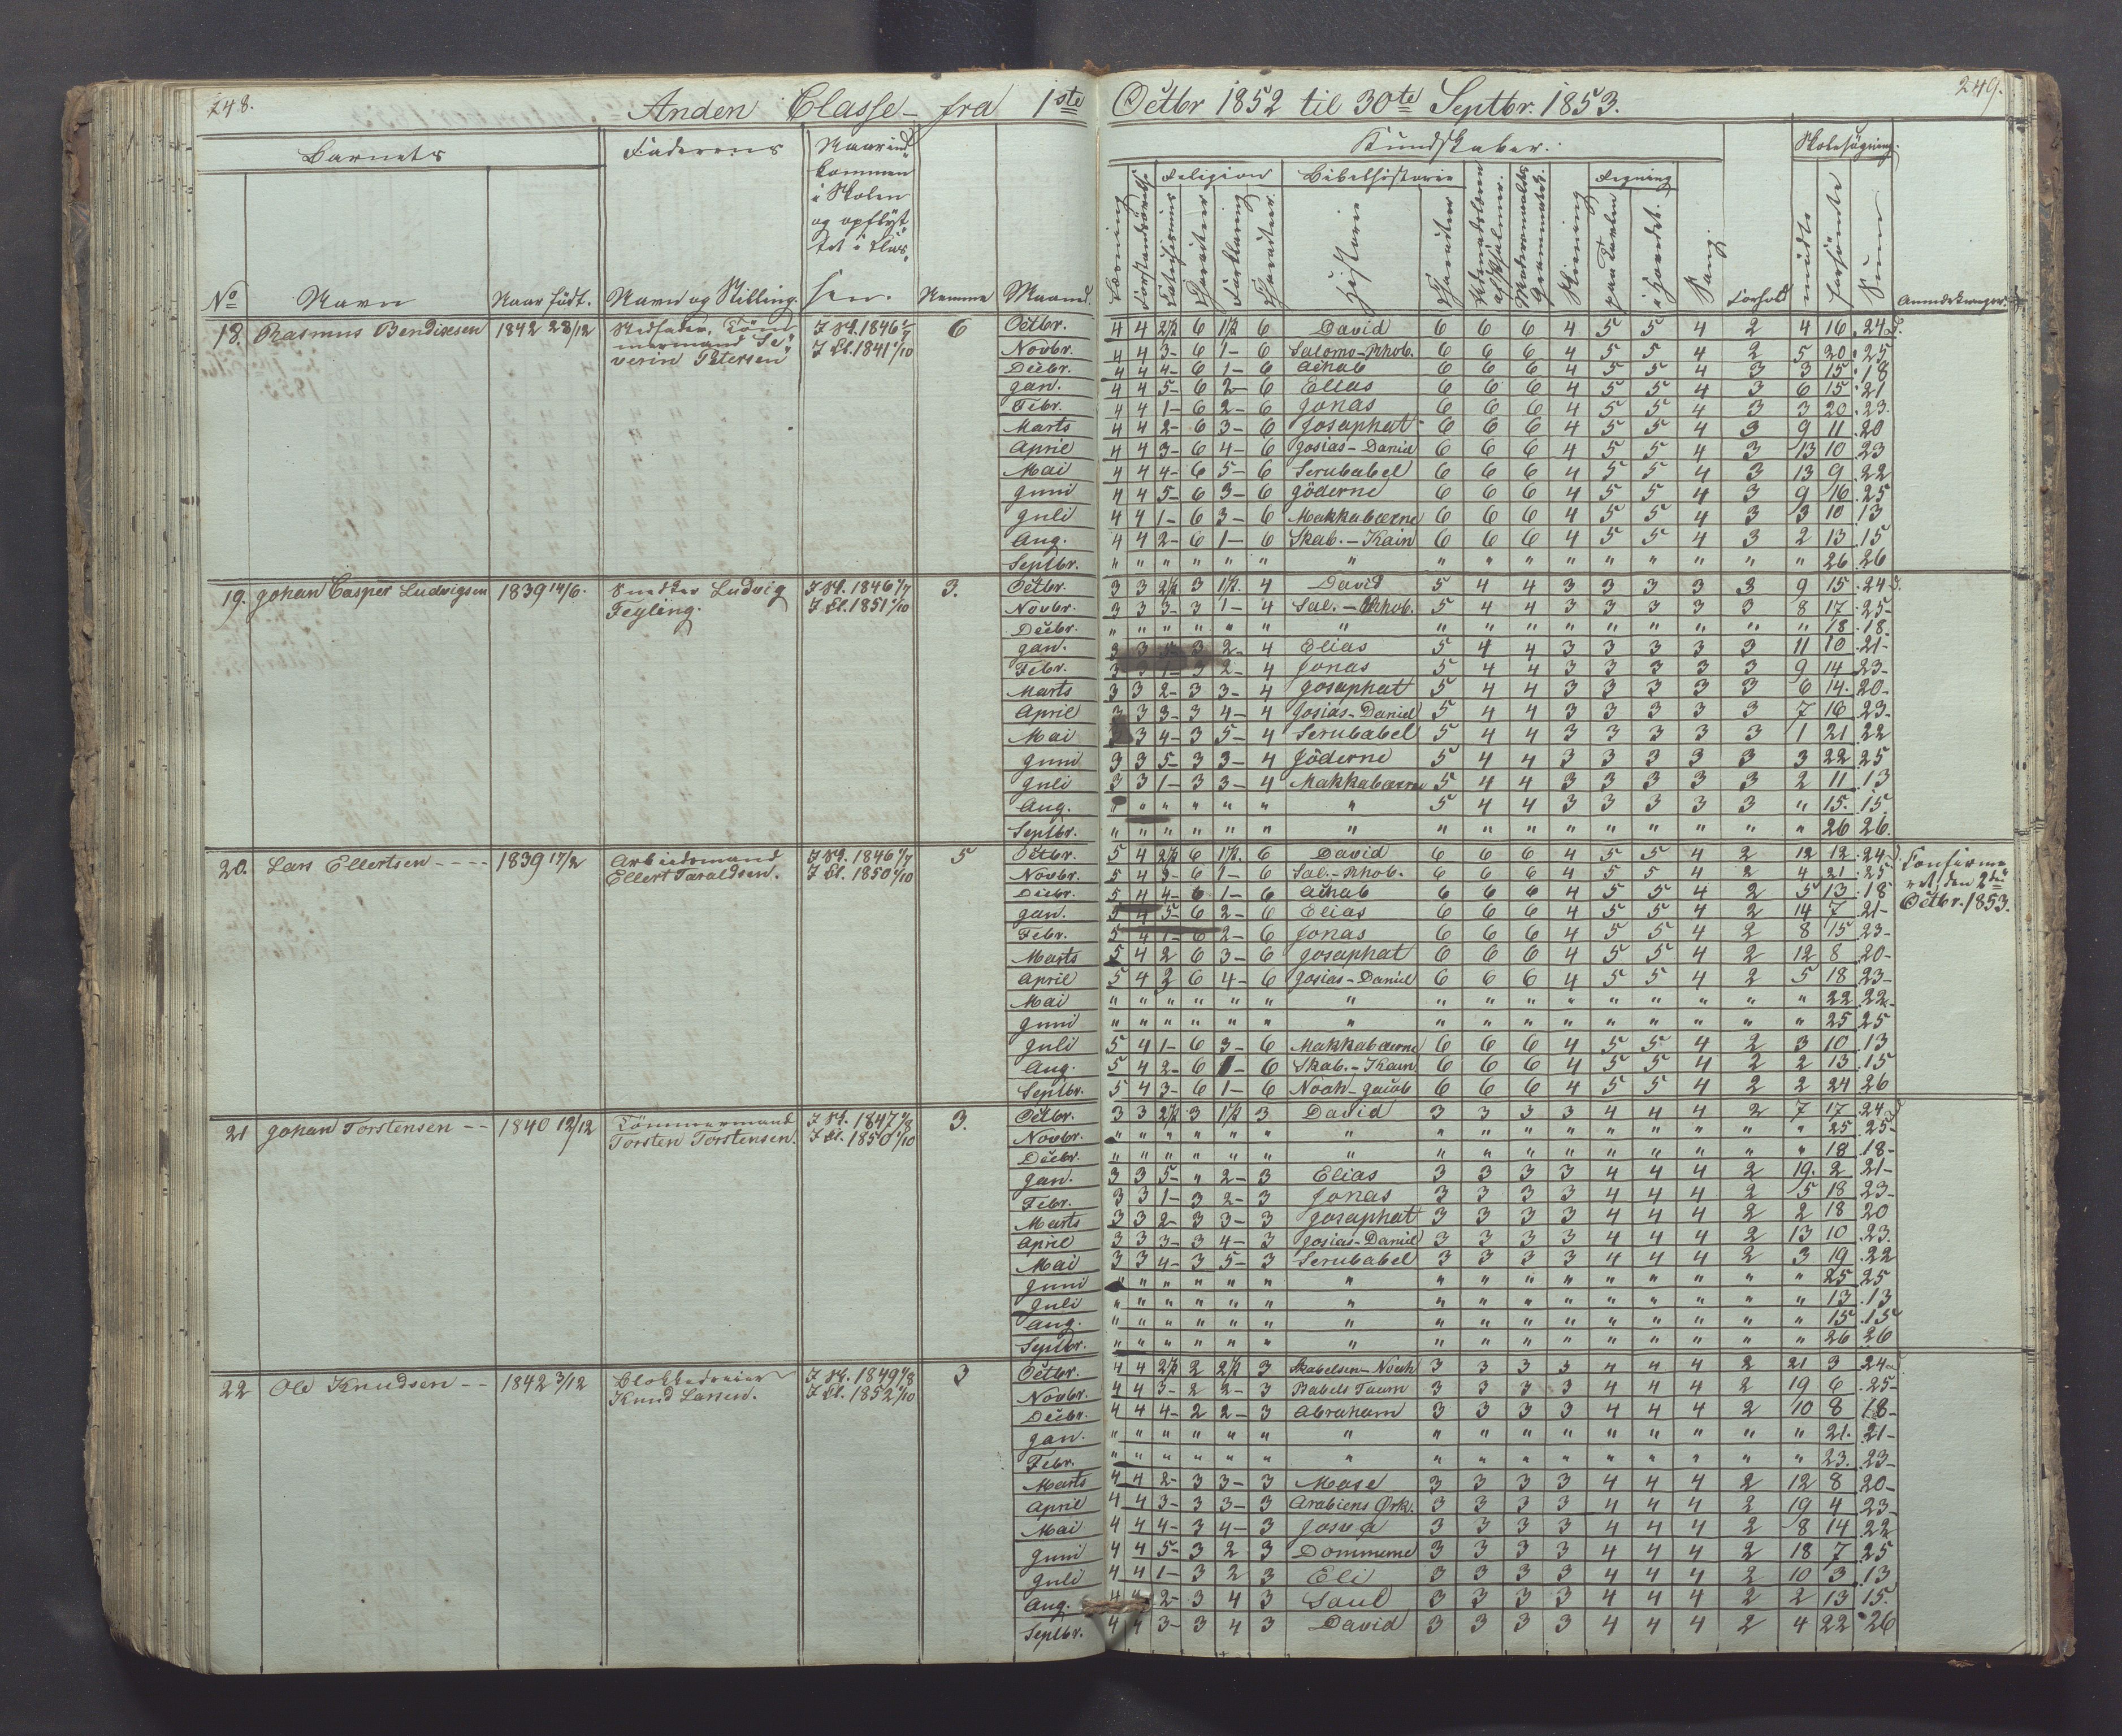 248.
Anden Classe fra 1ste Octbr 1852 til 30te Septbr. 1853.
249.
Barnets Faderens Naar ind kommen i Skolen og opflyt tet i Clas sen.
Kundskaber. Skolesøgning.
Religion Bibelhistorie Regning
No Navn Naar født. Navn og Stilling. Nemme Maaned
Læsning Catechismus Charakteer Forklaring Charakteer Historie Charakteer Skrivning paa Tavlen i Hovedet. Sang. Forhold mødt forsømt Sum Anmærkninger
18. Rasmus Bendixsen 1842 28/12 Stedfader, Töm mermand Se verin Petersen 6
Octbr. 4 4 2½ 6 1½ 6 David 6 6 6 4 5 5 4 2 4 16 24
Novbr. 4 4 3- 6 1- 6 Salomo-Rhob. 6 6 6 4 5 5 4 2 5 20 25
Decbr. 4 4 4- 6 1- 6 Achab 6 6 6 4 5 5 4 3 3 15 18
Jan. 4 4 5- 6 2- 6 Elias 6 6 6 4 5 5 4 3 6 15 21
Febr. 4 4 1- 6 2- 6 Jonas 6 6 6 4 5 5 4 3 3 20 23
Marts 4 4 2- 6 3- 6 Josaphat 6 6 6 4 5 5 4 3 9 11 20
April 4 4 3- 6 4- 6 Josias-Daniel 6 6 6 4 5 5 4 3 13 10 23
Mai 4 4 4- 6 5- 6 Serubabel 6 6 6 4 5 5 4 3 13 9 22
Juni 4 4 5- 6 3- 6 Jöderne 6 6 6 4 5 5 4 3 9 16 25
Juli 4 4 1- 6 3- 6 Makkabæerne 6 6 6 4 5 5 4 3 3 10 13
Aug. 4 4 2- 6 1- 6 Skab.-Kain 6 6 6 4 5 5 4 3 2 13 15
Septbr. " " " " " " " " " " " " " " " " 26 26
19. Johan Casper Ludvigsen 1839 14/6. Snedker Ludvig Feyling. I Sk. 1846 1/7 I Cl. 1851 1/10 3.
Octbr. 3 3 2½ 3 1½. 4 David 5 4 4 3 3 3 3 3 9 15 24
Novbr. 3 3 3- 3 1- 4 Sal.-Rhob. 5 4 4 3 3 3 3 3 8 17 25-
Decbr. " " " " " " " " " " " " " " " " 18 18-
Jan. 3 3 5- 3 2- 4 Elias 5 4 4 3 3 3 3 3 11 10 21-
Febr. 3 3 1- 3 2- 4 Jonas 5 4 4 3 3 3 3 3 9 14 23-
Marts 3 3 2- 3 3- 4 Josaphat 5 4 4 3 3 3 3 3 6 14. 20-
April 3 3 3- 3 4- 4 Josias-Daniel 5 4 4 3 3 3 3 3 7 16 23-
Mai 3 3 4- 3 5- 4 Serubabel 5 4 4 3 3 3 3 3 1 21 22
Juni 3 3 5- 3 3- 4 Jöderne 5 4 4 3 3 3 3 3 3 22 25
Juli 3 3 1- 3 3- 4 Makkabæerne 5 4 4 3 3 3 3 3 2 11 13
Aug. " " " " " " " 5 4 4 3 3 3 3 3 " 15. 15
Septbr. " " " " " " " " " " " " " " " " 26 26.
20. Lars Ellertsen 1839 17/2 Arbeidsmand Ellert Taraldsen. I Sk. 1846 1/7 I Cl. 1850 1/10 5
Octbr. 5 4 2½ 6 1½. 6 David 6 6 6 4 5 5 4 2 12 12 24
Novbr. 5 4 3- 6 1- 6 Sal.-Rhob. 6 6 6 4 5 5 4 2 4 21 25
Decbr. 5 4 4- 6 1- 6 Achab 6 6 6 4 5 5 4 2 5 13 18
Jan. 5 4 5- 6 2- 6 Elias 6 6 6 4 5 5 4 2 14 7 21-
Febr. 5 4 1- 6 2- 6 Jonas 6 6 6 4 5 5 4 2 8 15 23-
Marts 5 4 2 6 3- 6 Josaphat 6 6 6 4 5 5 4 2 12 8 20-
April 5 4 2 6 4- 6 Josias-Daniel 6 6 6 4 5 5 4 2 5 18 23-
Mai " " " " " " " " " " " " " " " " 22 22-
Juni " " " " " " " " " " " " " " " " 25 25
Juli 5 4 1- 6 3- 6 Makkabæerne 6 6 6 4 5 5 4 2 3 10 13
Aug. 5 4 2- 6 1- 6 Skab.-Kain 6 6 6 4 5 5 4 2 2 13 15
Septbr. 5 4 3- 6 1- 6 Noah-Jacob 6 6 6 4 5 5 4 2 2 24 26
Confirme ret, den 2den Octbr. 1853.
21 Johan Torstensen 1840 12/12 Tömmermand Torsten Torstensen. I Sk. 1847 1/8 I Cl. 1850 1/10 3.
Octbr. 3 3 2½ 3 1½ 3 David 3 3 3 3 4 4 4 2 7 17 24
Novbr. " " " " " " " " " " " " " " " " 25 25-
Decbr. " " " " " " " " " " " " " " " " 18 18-
Jan. 3 3 5- " 2- 3 Elias 3 3 3 3 4 4 4 2 19. 2 21-
Febr. 3 3 1- 3 2- 3 Jonas 3 3 3 3 4 4 4 2 5 18 23-
Marts 3 3 2- 3 3- 3 Josaphat 3 3 3 3 4 4 4 2 2 18 20
April 3 3 3- 3 4- 3 Josias-Daniel 3 3 3 3 4 4 4 2 13 10 23.
Mai 3 3 4- 3 5- 3 Serubabel 3 3 3 3 4 4 4 2 3 19 22
Juni " " " " " " " " " " " " " " " " 25 25
Juli " " " " " " " " " " " " " " " " 13 13
Aug. " " " " " " " " " " " " " " " " 15 15
Septbr. " " " " " " " " " " " " " " " " 26 26
22 Ole Knudsen 1842 3/12 Blokkedreier Knud Larsen. I Sk. 1849 1/8 I Cl. 1852 1/10 3
Octbr. 4 4 2½ 2 2½ 3 Skabelsen-Noah 3 3 3 3 4 4 4 2 21 3 24
Novbr. 4 4 3- 2 2- 3 Babels Taarn 3 3 3 3 4 4 4 2 19 6 25-
Decbr. 4 4 4- 2 2- 3 Abraham 3 3 3 3 4 4 4 2 10 8 18-
Jan. " " " " " " " " " " " " " " " " 21. 21-
Febr. " " " " " " " " " " " " " " " " 23. 23-
Marts 4 4 2- 3 3- 3 Mose 3 3 3 3 4 4 4 2 12 8 20-
April 4 4 3- 3 3- 3 Arabiens Ørk. 3 3 3 3 4 4 4 2 19 4 23-
Mai 4 4 4- 3 4- 3 Josva 3 3 3 3 4 4 4 2 8 14 22
Juni 4 4 5- 3 2 3 Dommerne 3 3 3 3 4 4 4 2 18 7 25
Juli 4 4 1- 3 2 3 Eli 3 3 3 3 4 4 4 2 10 3 13
Aug. 4 4 2- 3 4 3 Saul 3 3 3 3 4 4 4 2 2 13 15.
Septbr. 4 4 3- 3 4 3 David 3 3 3 3 4 4 4 2 4 22 26